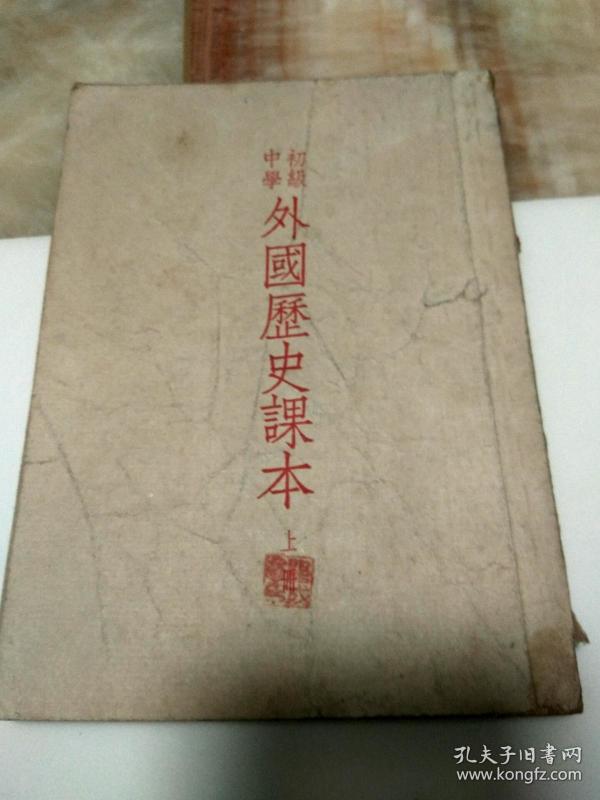 初級
中學
外國歷史課本
上冊
孔夫子旧书网
www.kongfz.com